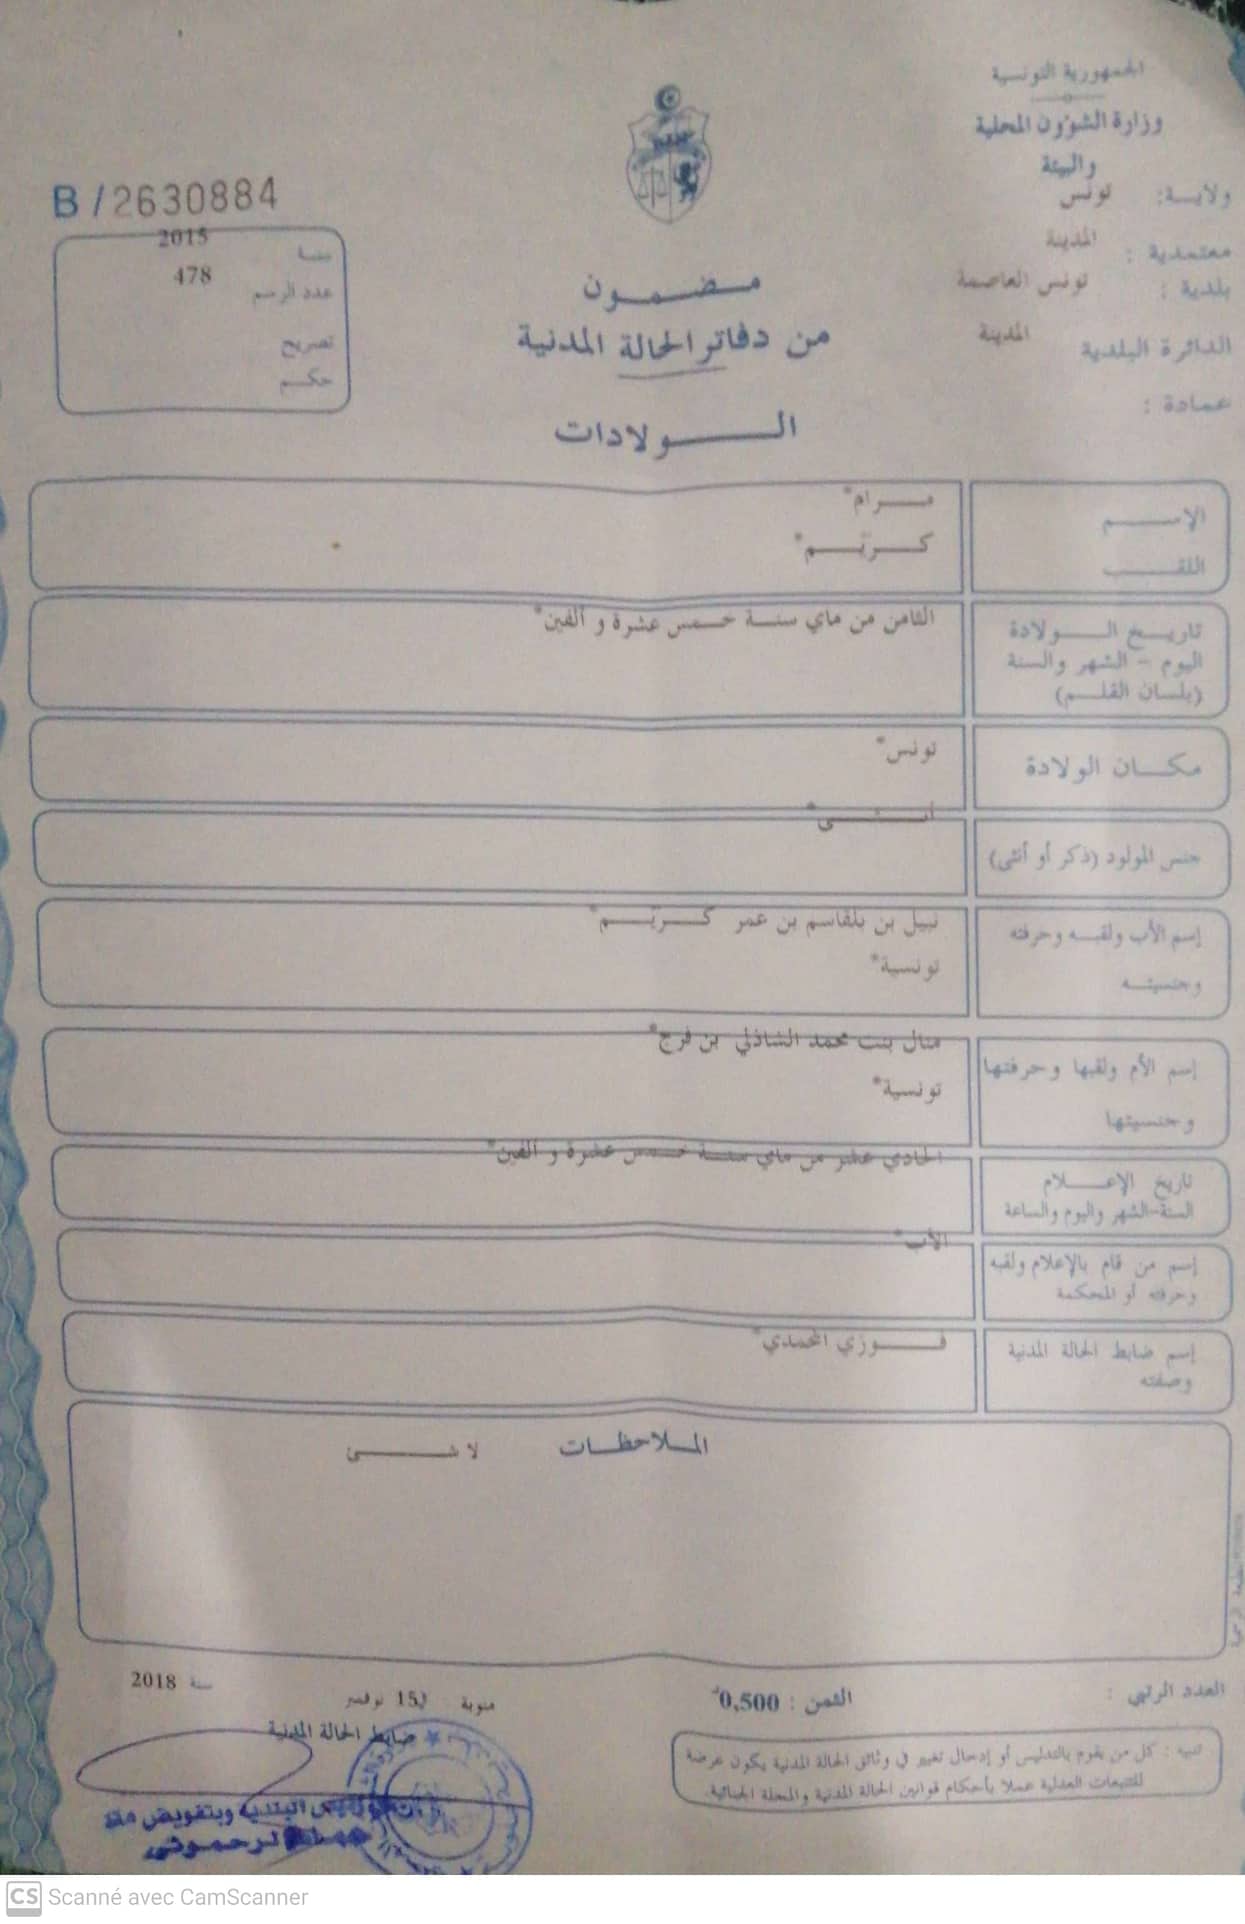 الجمهورية التونسية
وزارة الشؤون المحلية
والبيئة
ولايـة: تونس
معتمدية : المدينة
بلدية : تونس العاصمة
الدائرة البلدية المدينة
عمادة :
B / 2630884
سنة 2015
عدد الرسم 478
تصريح
حكم
مضمون
من دفاتر الحالة المدنية
الولادات
الإسم مرام*
اللقب كريم*
تاريخ الولادة الثامن من ماي سنة خمس عشرة و ألفين*
اليوم - الشهر والسنة
(بلسان القلم)
مكان الولادة تونس*
جنس المولود (ذكر أو أنثى) أنثى*
إسم الأب ولقبه وحرفته نبيل بن بلقاسم بن عمر كريم*
وجنسيته تونسية*
إسم الأم ولقبها وحرفتها منال بنت محمد الشاذلي بن فرج*
وجنسيتها تونسية*
تاريخ الإعلام الحادي عشر من ماي سنة خمس عشرة و ألفين*
السنة-الشهر واليوم والساعة
إسم من قام بالإعلام ولقبه الأب*
وحرفته أو المحكمة
إسم ضابط الحالة المدنية فوزي المحمدي*
وصفته
الملاحظات لا شى
العدد الرتبي :
الثمن : 0,500د
منوبة في 15 نوفمبر سنة 2018
ضابط الحالة المدنية
تنبيه : كل من يقوم بالتدليس أو إدخال تغيير في وثائق الحالة المدنية يكون عرضة
للتتبعات العدلية عملا بأحكام قوانين الحالة المدنية والمجلة الجنائية.
البلدية وبتفويض منه
الرحموني
CS Scanné avec CamScanner